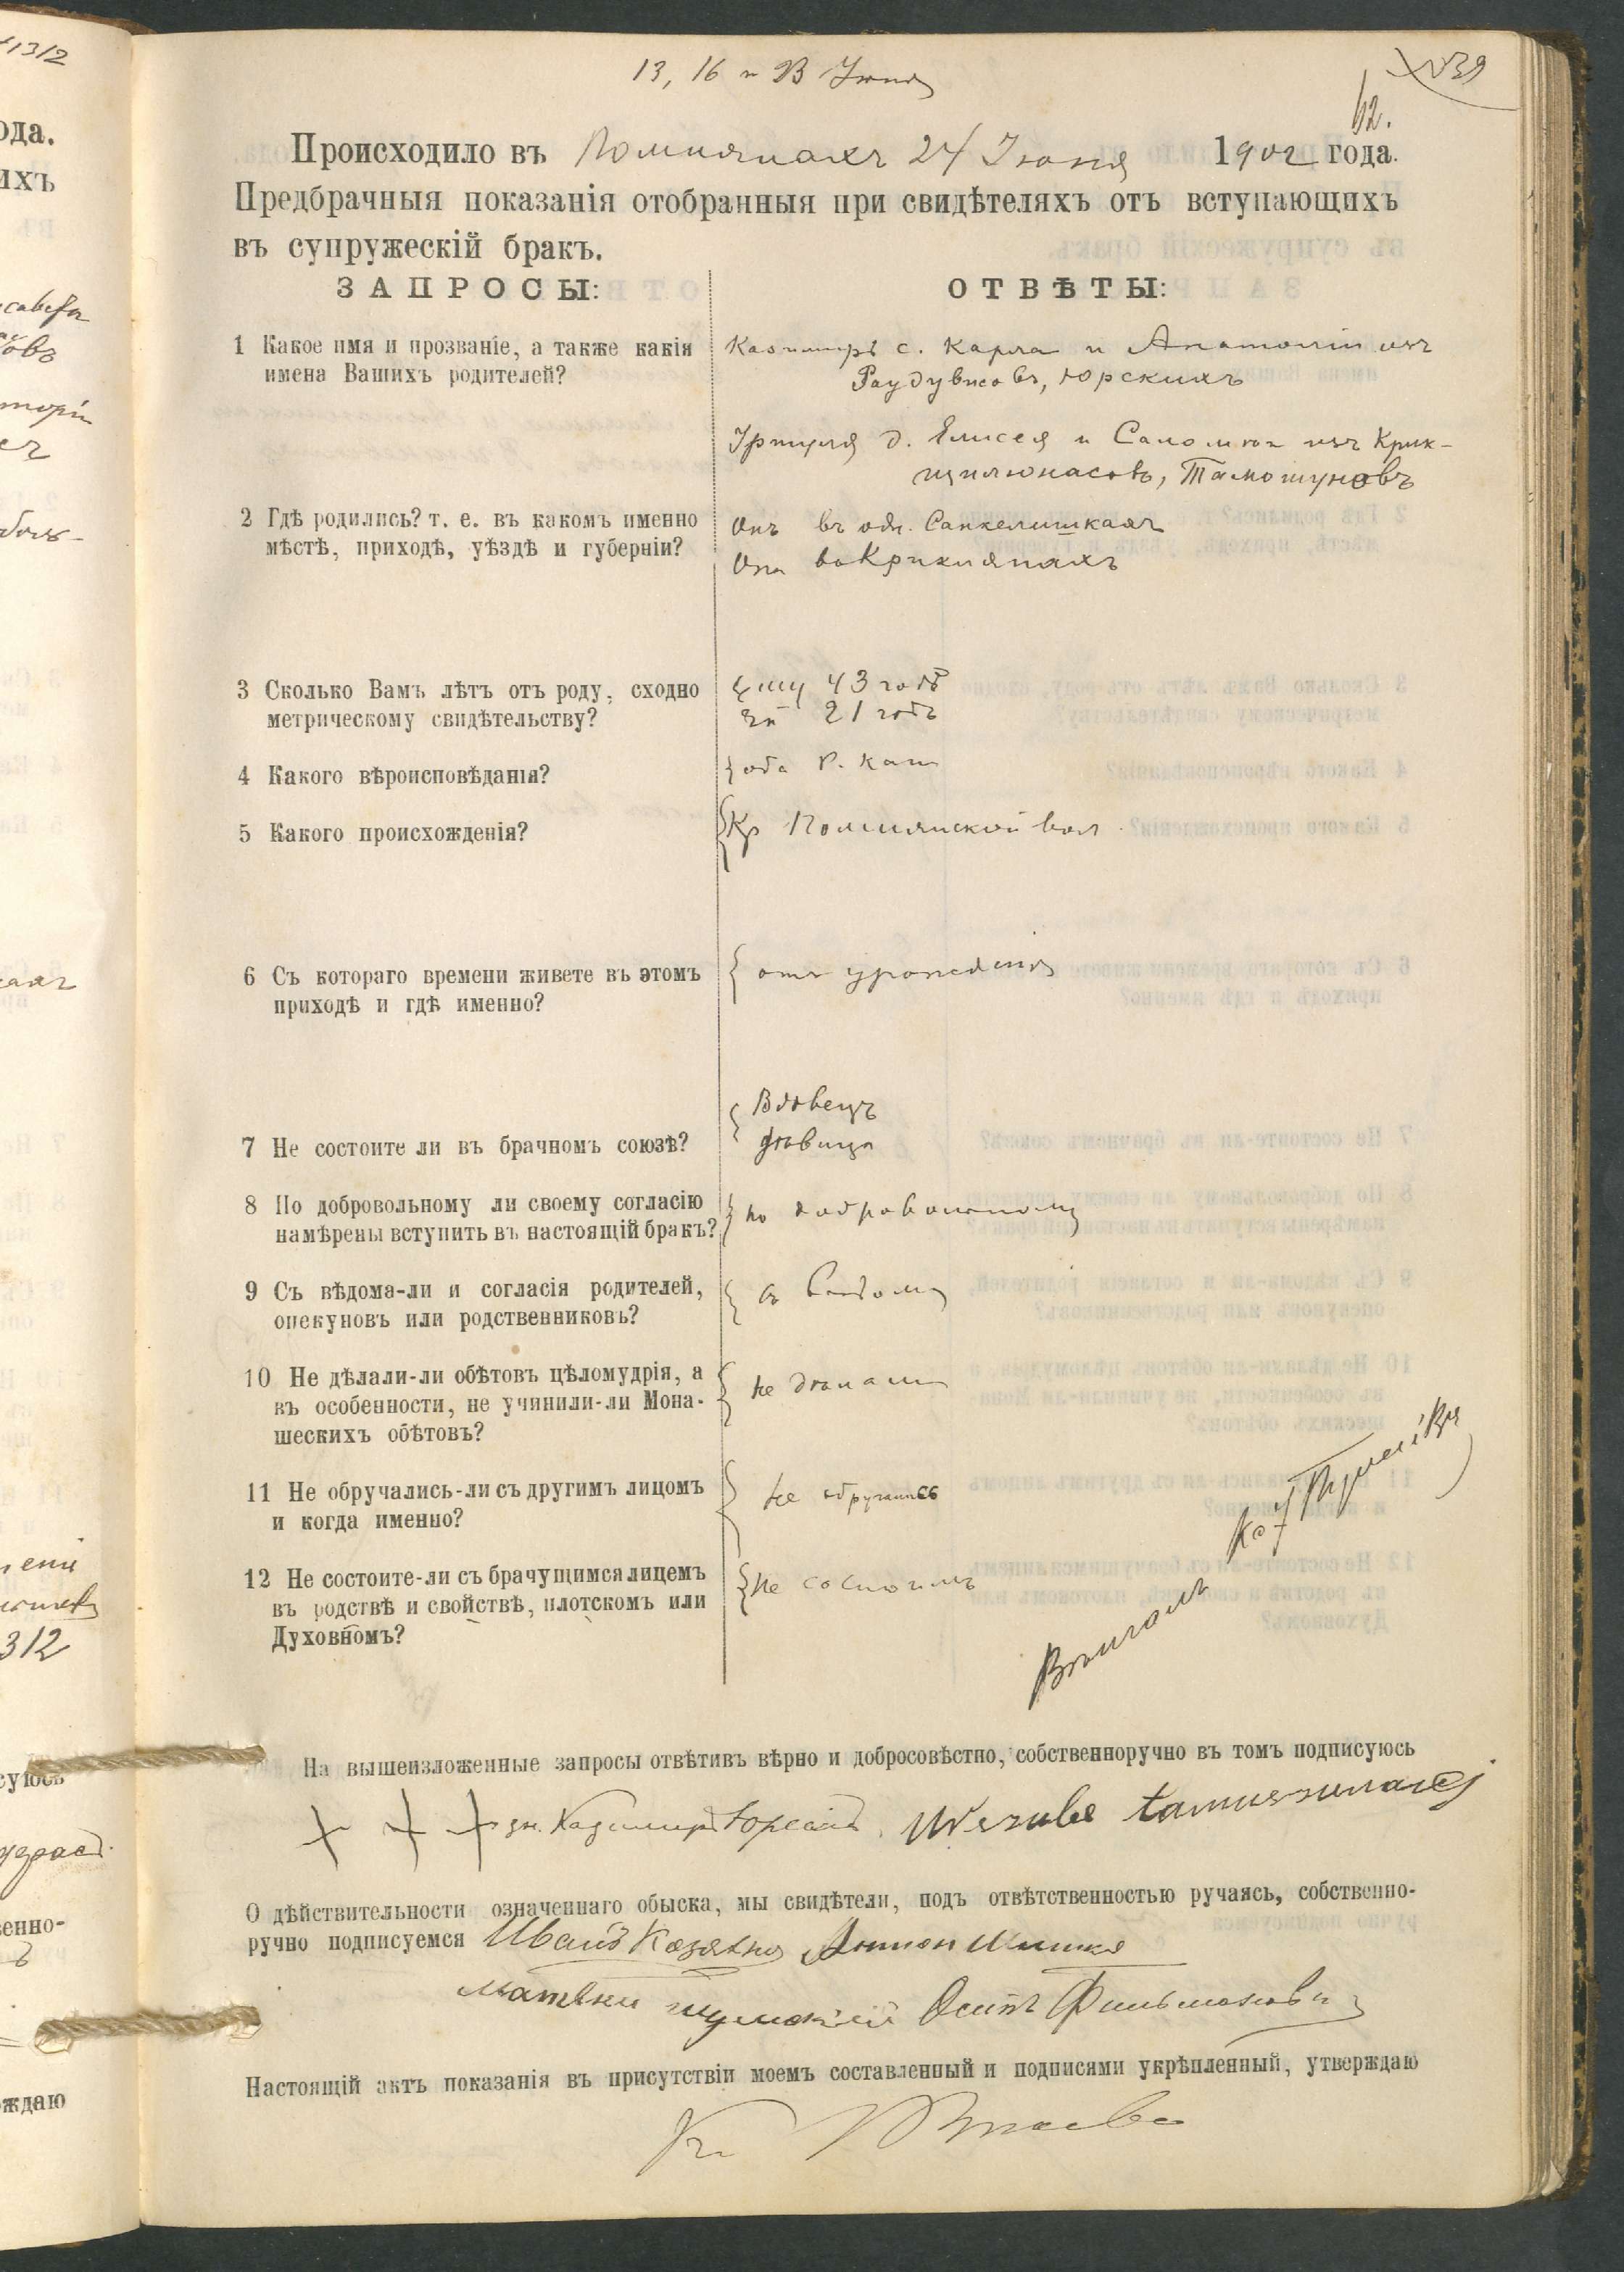 1312
13, 16 и 23 Июня
№39
62.
Происходило въ Помнянахъ 24 Июня 1902 года.
Предбрачныя показанія отобранныя при свидѣтеляхъ отъ вступающихъ
въ супружескій бракъ.
ЗАПРОСЫ: ОТВѢТЫ:
1 Какое имя и прозваніе, а также какія
имена Вашихъ родителей?
Казимиръ с. Карла и Анатоліи изъ
Раудувисовъ, Юрскихъ
д. Елисея и Саломеи изъ Крик-
щилюнасовъ, Тамошуновъ
2 Гдѣ родились? т. е. въ какомъ именно
мѣстѣ, приходѣ, уѣздѣ и губерніи?
Онъ въ одн. Санкелишкахъ
Она въ Крикпянахъ
3 Сколько Вамъ лѣтъ отъ роду, сходно
метрическому свидѣтельству?
Ему 43 годъ
Ей 21 годъ
4 Какого вѣроисповѣданія?
оба Р. кат
5 Какого происхожденія?
Кр Помнянской вол
6 Съ котораго времени живете въ этомъ
приходѣ и гдѣ именно?
отъ урожденія
7 Не состоите ли въ брачномъ союзѣ?
Вдовецъ
дѣвица
8 По добровольному ли своему согласію
намѣрены вступить въ настоящій бракъ?
по добровольному
9 Съ вѣдома-ли и согласія родителей,
опекуновъ или родственниковъ?
съ вѣдома
10 Не дѣлали-ли обѣтовъ цѣломудрія, а
въ особенности, не учинили-ли Мона-
шескихъ обѣтовъ?
не дѣлали
11 Не обручались-ли съ другимъ лицомъ
и когда именно?
не обручались
12 Не состоите-ли съ брачущимся лицемъ
въ родствѣ и свойствѣ, плотскомъ или
Духовномъ?
не состоимъ
Вѣнчалъ
На вышеизложенные запросы отвѣтивъ вѣрно и добросовѣстно, собственноручно въ томъ подписуюсь
+ + + зн. Казимиръ Юрскій
О дѣйствительности означеннаго обыска, мы свидѣтели, подъ отвѣтственностью ручаясь, собственно-
ручно подписуемся Иванъ Антон
Осипъ
Настоящій актъ показанія въ присутствіи моемъ составленный и подписями укрѣпленный, утверждаю